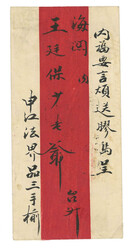 内函要言煩送膠島呈
海關內
王廷保少老爺台升
申江法界品三手椷